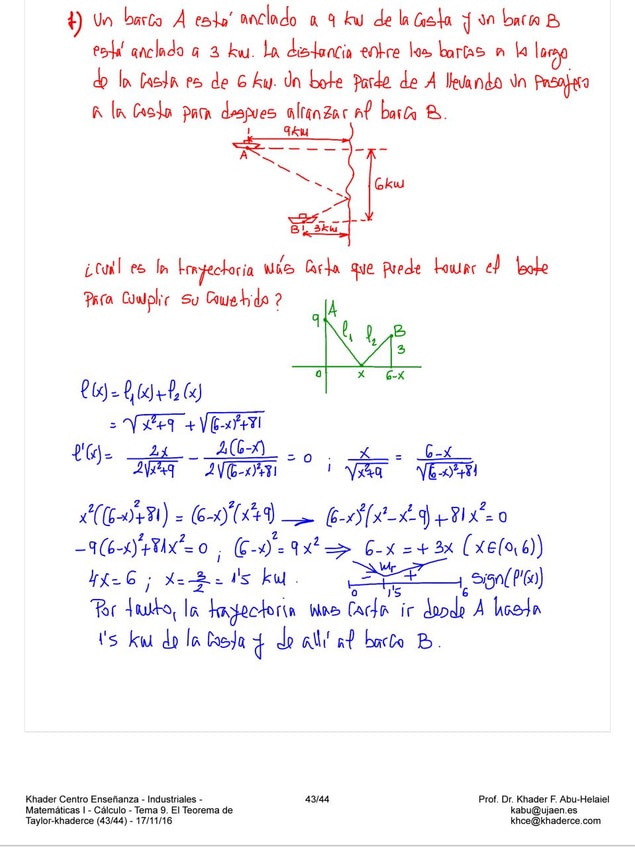 f) Un barco A está anclado a 9 km de la costa y un barco B
está anclado a 3 km. La distancia entre los barcos a lo largo
de la costa es de 6 km. Un bote parte de A llevando un pasajero
a la costa para despues alcanzar al barco B.
9km
A
6km
B
3km
¿cuál es la trayectoria más corta que puede tomar el bote
para cumplir su cometido?
A
9
l₁ l₂ B
3
0 x 6-x
l(x) = l₁(x) + l₂(x)
= √(x²+9) + √((6-x)²+81)
l'(x) = 2x/(2√(x²+9)) - 2(6-x)/(2√((6-x)²+81)) = 0 ; x/√(x²+9) = (6-x)/√((6-x)²+81)
x²((6-x)²+81) = (6-x)²(x²+9) → (6-x)²(x²-x²-9) + 81x² = 0
-9(6-x)²+81x² = 0 ; (6-x)² = 9x² ⇒ 6-x = +3x (x∈(0,6))
4x = 6 ; x = 3/2 = 1'5 km.
- +
0 1'5 6 sign(l'(x))
Por tanto, la trayectoria mas corta ir desde A hasta
1'5 km de la costa y de allí al barco B.
Khader Centro Enseñanza - Industriales -
Matemáticas I - Cálculo - Tema 9. El Teorema de
Taylor-khaderce (43/44) - 17/11/16
43/44
Prof. Dr. Khader F. Abu-Helaiel
kabu@ujaen.es
khce@khaderce.com